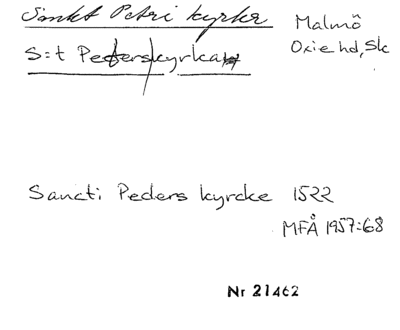 Sankt Petri kyrka
Malmö
Oxie hd, Sk
S:t Peterskyrka
Sancti Peders kyrcke 1522
MFÅ 1957:68
Nr 21462